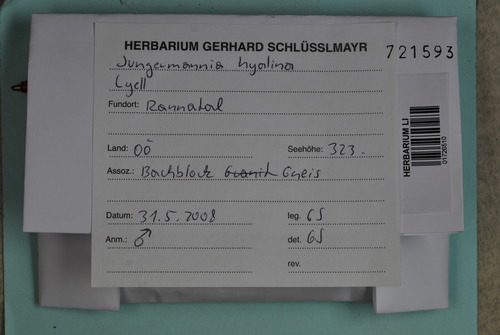 HERBARIUM GERHARD SCHLÜSSLMAYR
721593
Jungermannia hyalina
Lyell
Fundort: Rannatal
Land: OÖ Seehöhe: 323.
Assoz.: Bachblock Granit Gneis
Datum: 31.5.2008 leg. GS
Anm.: ♂ det. GS
rev.
HERBARIUM LI
01726510